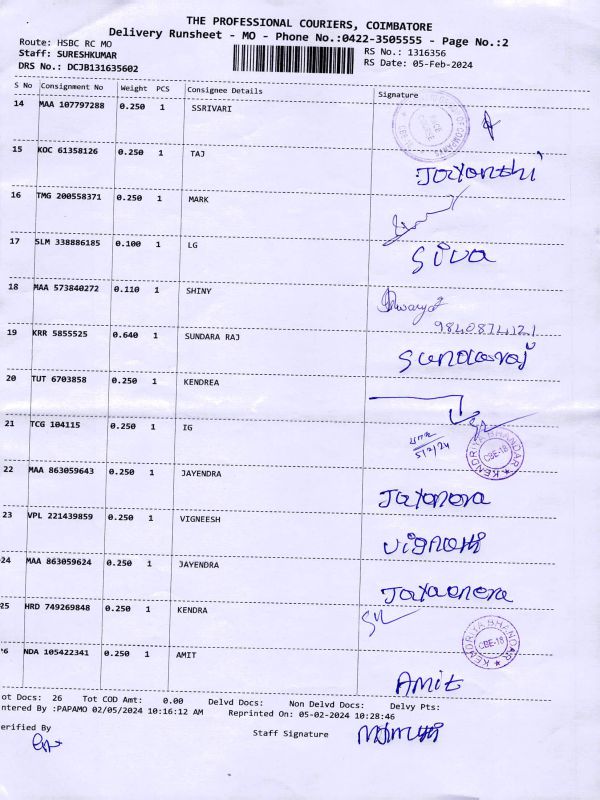 THE PROFESSIONAL COURIERS, COIMBATORE
Delivery Runsheet - MO - Phone No.:0422-3505555 - Page No.:2
Route: HSBC RC MO
RS No.: 1316356
Staff: SURESHKUMAR
RS Date: 05-Feb-2024
DRS No.: DCJB131635602
S No Consignment No Weight PCS Consignee Details Signature
14 MAA 107797288 0.250 1 SSRIVARI
15 KOC 61358126 0.250 1 TAJ
Jayanthi
16 TMG 200558371 0.250 1 MARK
17 SLM 338886185 0.100 1 LG
Siva
18 MAA 573840272 0.110 1 SHINY
19 KRR 5855525 0.640 1 SUNDARA RAJ
Sundaraj
20 TUT 6703858 0.250 1 KENDREA
21 TCG 104115 0.250 1 IG
5/2/24
KENDRIYA BHANDAR
CBE-18
22 MAA 863059643 0.250 1 JAYENDRA
23 VPL 221439859 0.250 1 VIGNEESH
24 MAA 863059624 0.250 1 JAYENDRA
25 HRD 749269848 0.250 1 KENDRA
KENDRIYA BHANDAR
CBE-18
26 NDA 105422341 0.250 1 AMIT
Amit
ot Docs: 26 Tot COD Amt: 0.00 Delvd Docs: Non Delvd Docs: Delvy Pts:
ntered By :PAPAMO 02/05/2024 10:16:12 AM Reprinted On: 05-02-2024 10:28:46
erified By
Staff Signature